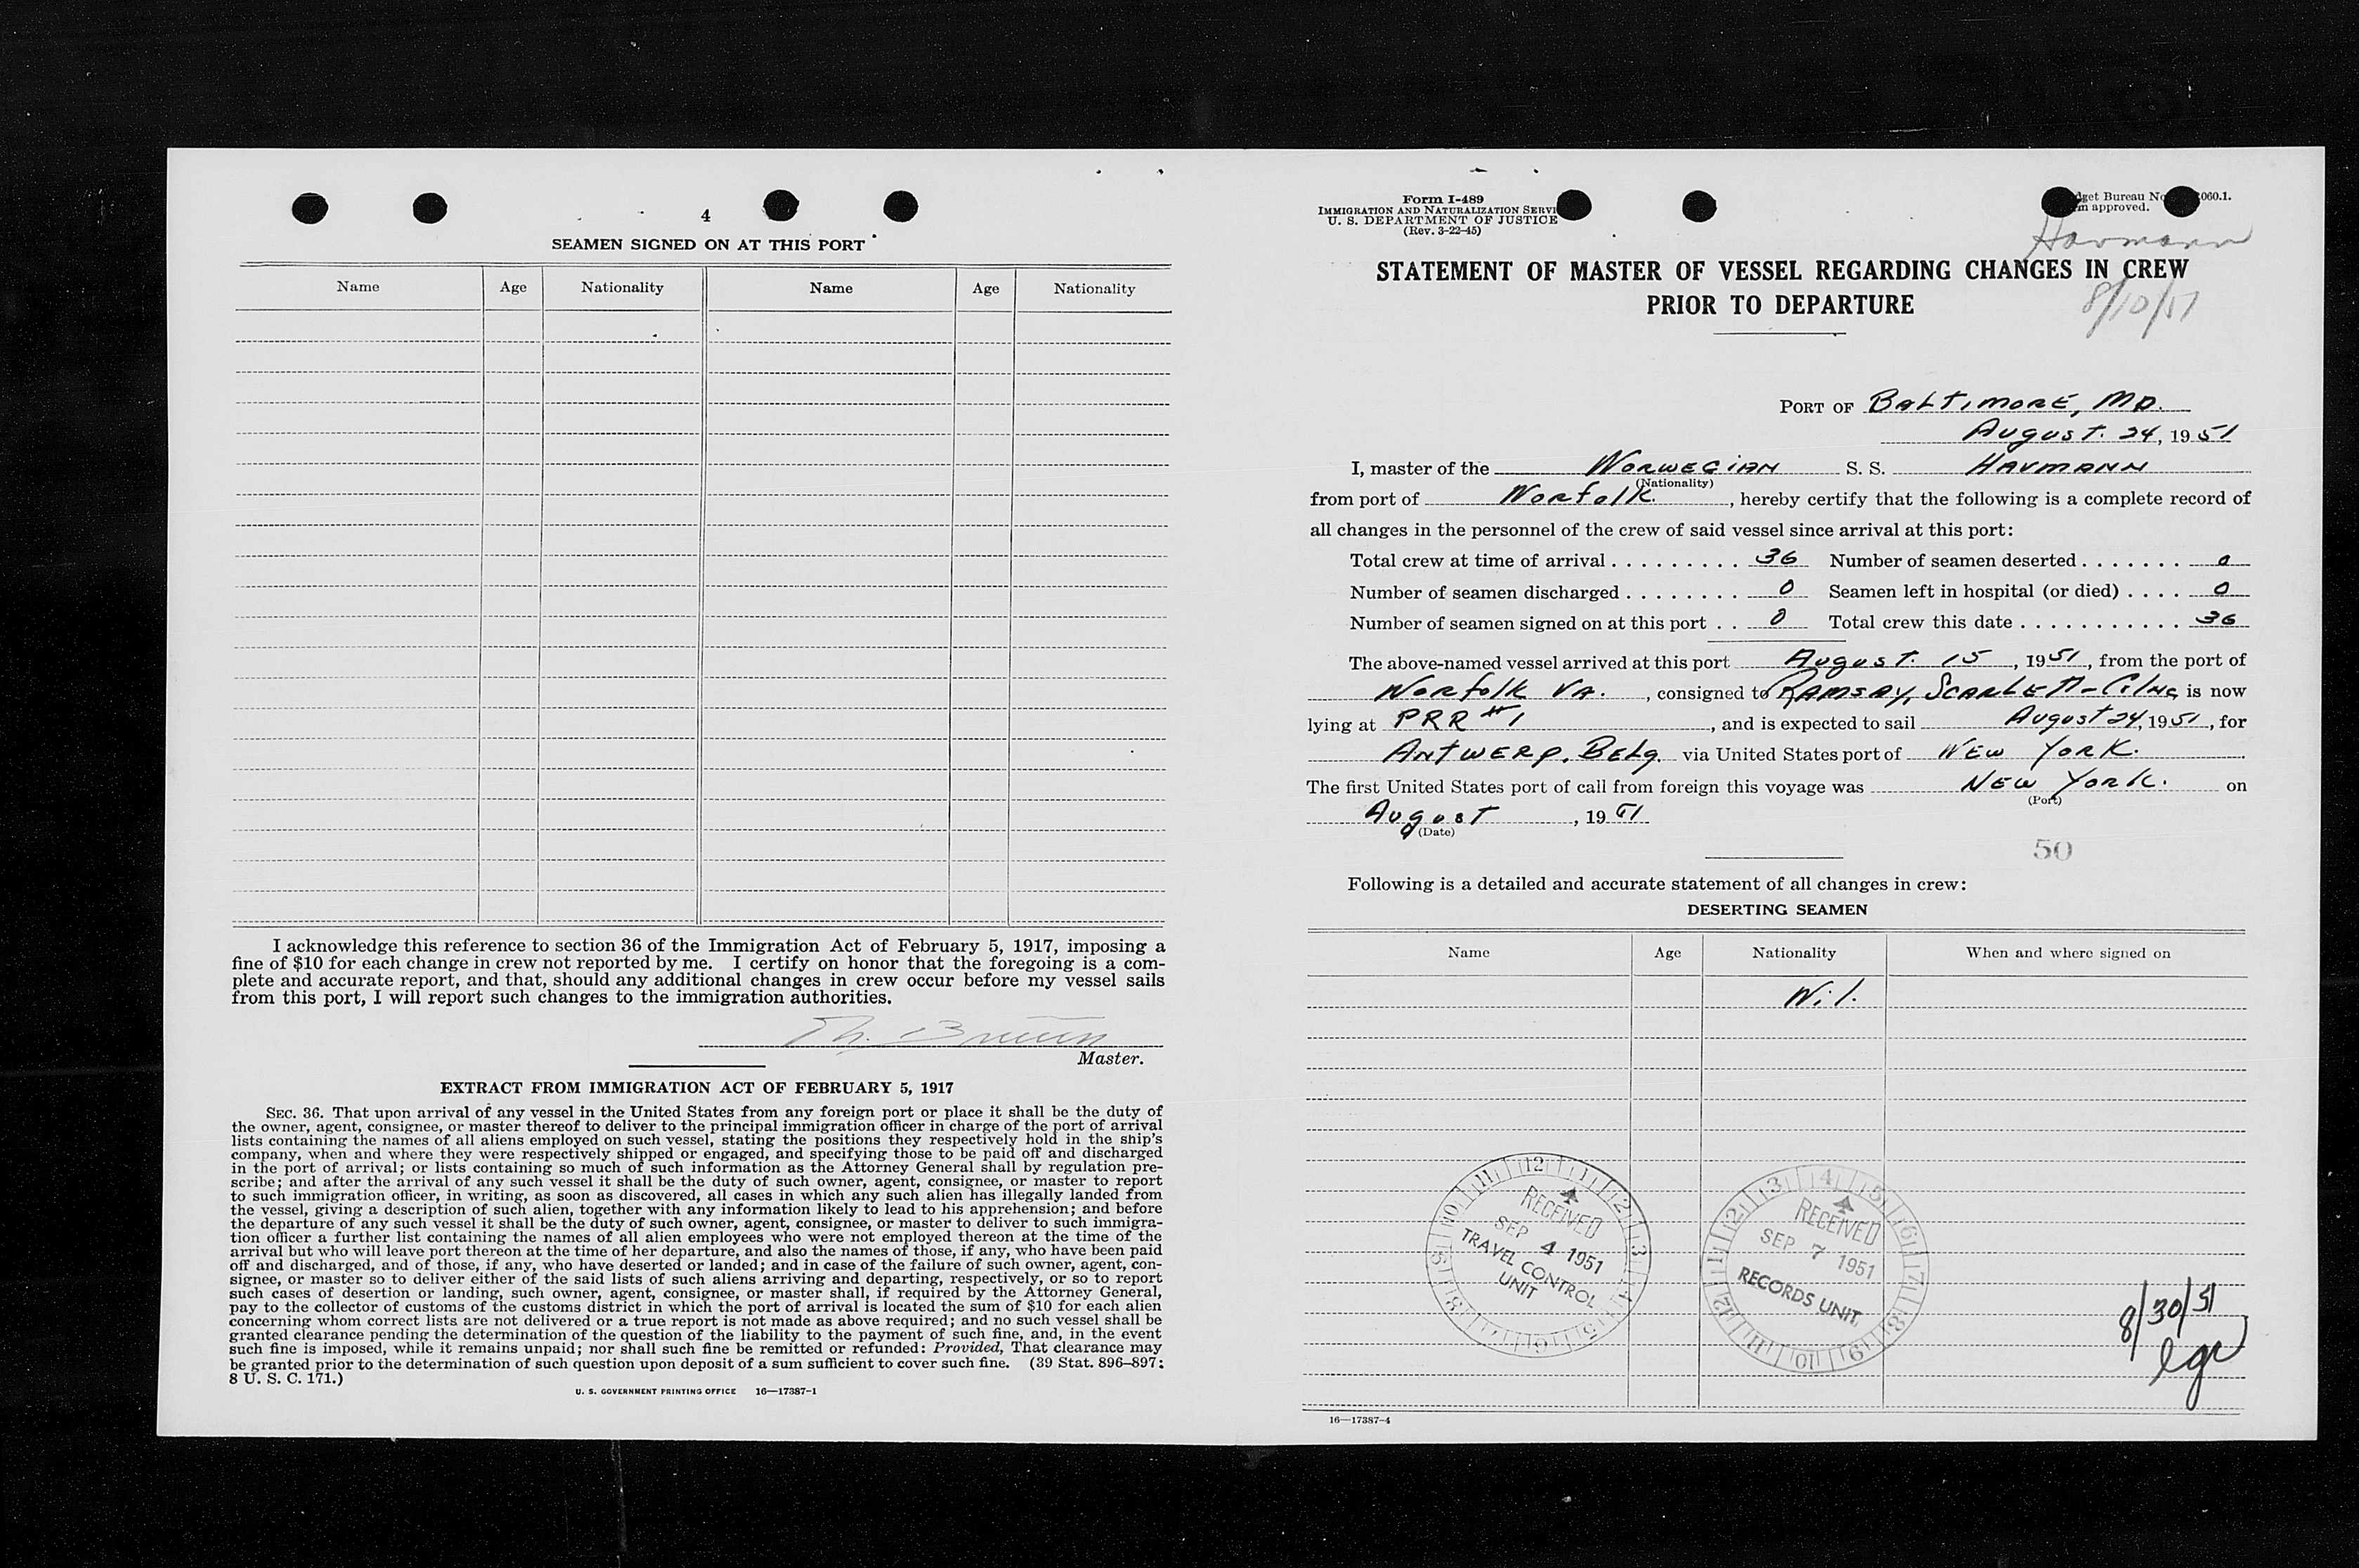 4
SEAMEN SIGNED ON AT THIS PORT
Name Age Nationality Name Age Nationality
I acknowledge this reference to section 36 of the Immigration Act of February 5, 1917, imposing a
fine of $10 for each change in crew not reported by me. I certify on honor that the foregoing is a com-
plete and accurate report, and that, should any additional changes in crew occur before my vessel sails
from this port, I will report such changes to the immigration authorities.
Master.
EXTRACT FROM IMMIGRATION ACT OF FEBRUARY 5, 1917
SEC. 36. That upon arrival of any vessel in the United States from any foreign port or place it shall be the duty of
the owner, agent, consignee, or master thereof to deliver to the principal immigration officer in charge of the port of arrival
lists containing the names of all aliens employed on such vessel, stating the positions they respectively hold in the ship's
company, when and where they were respectively shipped or engaged, and specifying those to be paid off and discharged
in the port of arrival; or lists containing so much of such information as the Attorney General shall by regulation pre-
scribe; and after the arrival of any such vessel it shall be the duty of such owner, agent, consignee, or master to report
to such immigration officer, in writing, as soon as discovered, all cases in which any such alien has illegally landed from
the vessel, giving a description of such alien, together with any information likely to lead to his apprehension; and before
the departure of any such vessel it shall be the duty of such owner, agent, consignee, or master to deliver to such immigra-
tion officer a further list containing the names of all alien employees who were not employed thereon at the time of the
arrival but who will leave port thereon at the time of her departure, and also the names of those, if any, who have been paid
off and discharged, and of those, if any, who have deserted or landed; and in case of the failure of such owner, agent, con-
signee, or master so to deliver either of the said lists of such aliens arriving and departing, respectively, or so to report
such cases of desertion or landing, such owner, agent, consignee, or master shall, if required by the Attorney General,
pay to the collector of customs of the customs district in which the port of arrival is located the sum of $10 for each alien
concerning whom correct lists are not delivered or a true report is not made as above required; and no such vessel shall be
granted clearance pending the determination of the question of the liability to the payment of such fine, and, in the event
such fine is imposed, while it remains unpaid; nor shall such fine be remitted or refunded: Provided, That clearance may
be granted prior to the determination of such question upon deposit of a sum sufficient to cover such fine. (39 Stat. 896–897;
8 U. S. C. 171.)
U. S. GOVERNMENT PRINTING OFFICE 16—17387-1
Form I-489
IMMIGRATION AND NATURALIZATION SERVI
U. S. DEPARTMENT OF JUSTICE
(Rev. 3-22-45)
get Bureau No 060.1.
m approved.
Havmann
STATEMENT OF MASTER OF VESSEL REGARDING CHANGES IN CREW
PRIOR TO DEPARTURE
8/10/51
PORT OF BALTIMORE, MD.
August. 24, 1951
I, master of the NORWEGIAN S. S. HAVMANN
(Nationality)
from port of Norfolk., hereby certify that the following is a complete record of
all changes in the personnel of the crew of said vessel since arrival at this port:
Total crew at time of arrival . . . . . . . . . 36 Number of seamen deserted . . . . . . . 0
Number of seamen discharged . . . . . . . . 0 Seamen left in hospital (or died) . . . . 0
Number of seamen signed on at this port . . 0 Total crew this date . . . . . . . . . . . 36
The above-named vessel arrived at this port August. 15, 1951, from the port of
Norfolk VA., consigned to RAMSAY, SCARLETT is now
lying at PRR #1, and is expected to sail August 24, 1951, for
ANTWERP. BELG. via United States port of NEW YORK.
The first United States port of call from foreign this voyage was NEW YORK. on
(Port)
August, 1951
(Date)
50
Following is a detailed and accurate statement of all changes in crew:
DESERTING SEAMEN
Name Age Nationality When and where signed on
Nil.
RECEIVED
SEP 4 1951
TRAVEL CONTROL
UNIT
RECEIVED
SEP 7 1951
RECORDS UNIT
8/30/51
16—17387-4